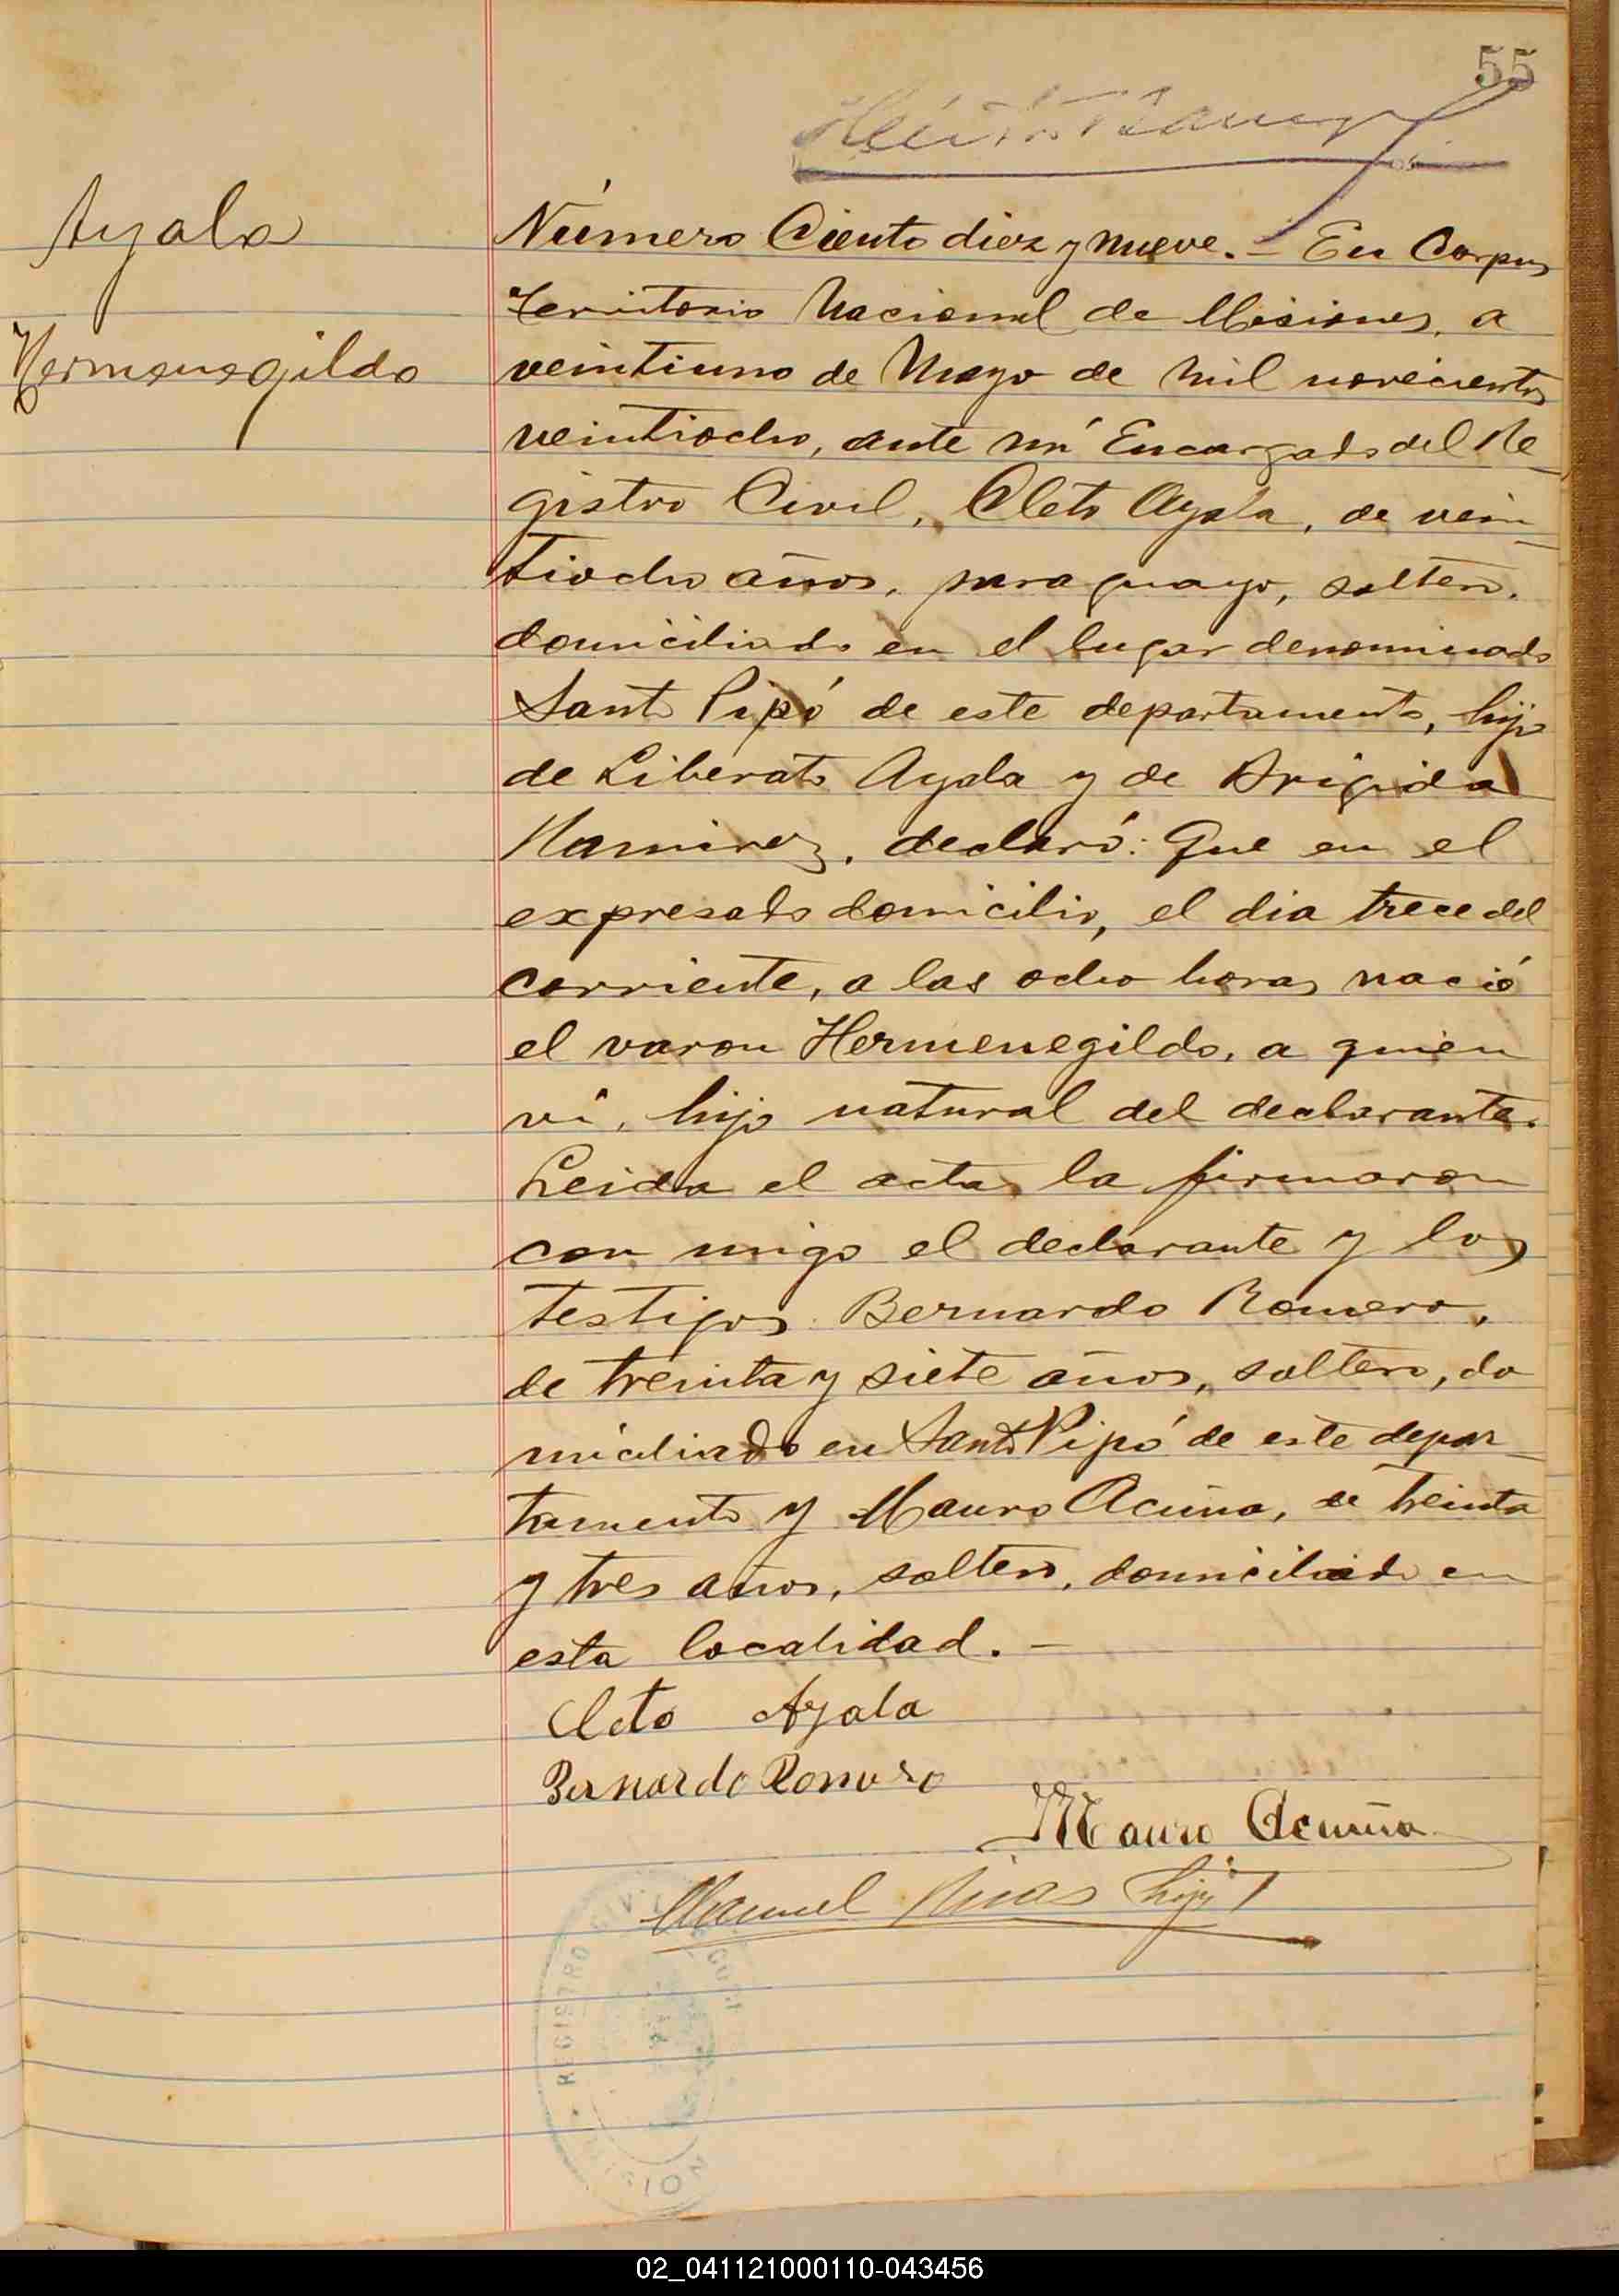 55
Ayala
Hermenegildo
Número Ciento diez y nueve.- En Corpus
Territorio Nacional de Misiones, a
veintiuno de Mayo de mil novecientos
veintiocho, ante mí Encargado del Re-
gistro Civil, Cleto Ayala, de vein-
tiocho años, paraguayo, soltero,
domiciliado en el lugar denominado
Santo Pipó de este departamento, hijo
de Liberato Ayala y de Brigida
Ramirez, declaró: Que en el
expresado domicilio, el dia trece del
corriente, a las ocho horas nació
el varon Hermenegildo, a quien
ví, hijo natural del declarante.
Leida el acta, la firmaron
con migo el declarante y los
testigos: Bernardo Romero,
de treinta y siete años, soltero, do
miciliado en Santo Pipó de este depar-
tamento y Mauro Acuña, de treinta
y tres años, soltero, domiciliado en
esta localidad.-
Cleto Ayala
Bernardo Romero
Mauro Acuña
Manuel hijo
REGISTRO CIVIL
02_041121000110-043456